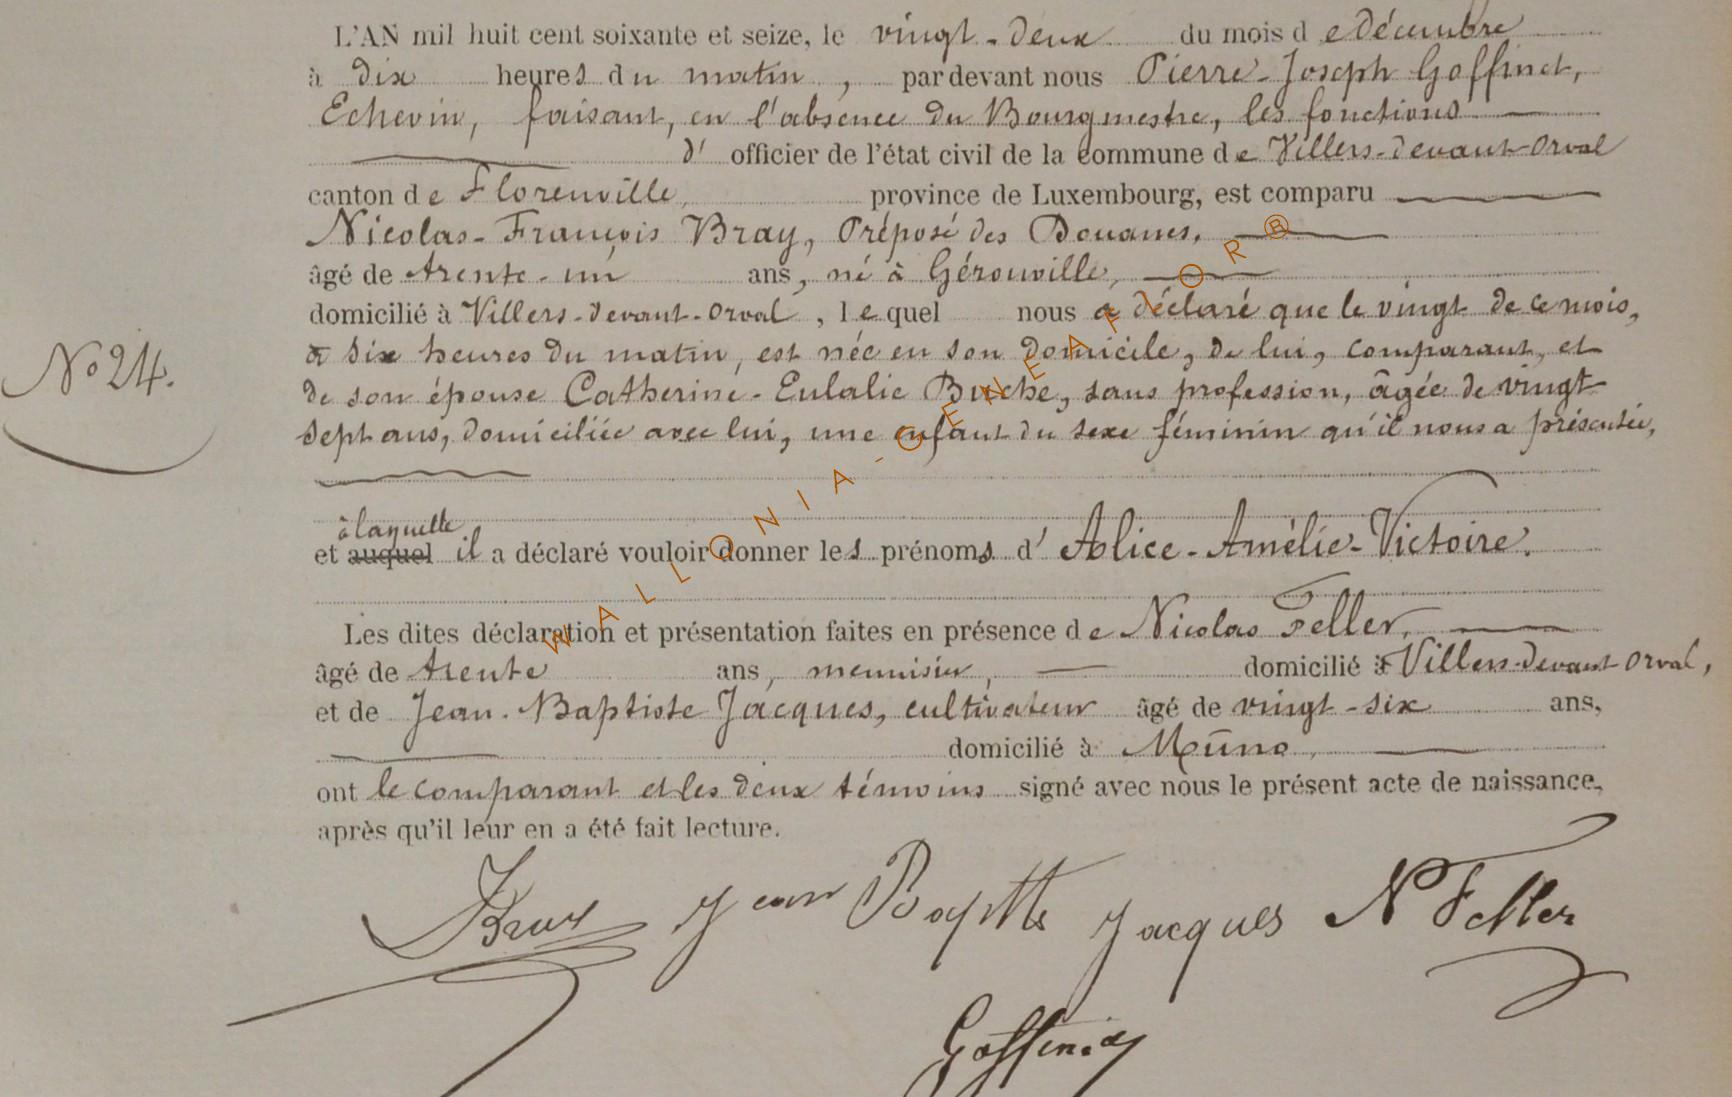 L'AN mil huit cent soixante et seize, le vingt-deux du mois de décembre
à dix heures du matin, par devant nous Pierre-Joseph Goffinet,
Echevin, faisant, en l'absence du Bourgmestre, les fonctions
d' officier de l'état civil de la commune de Villers-devant-Orval
canton de Florenville, province de Luxembourg, est comparu
Nicolas-François Bray, Préposé des Douanes,
âgé de trente-un ans, né à Gérouville,
domicilié à Villers-devant-Orval, lequel nous a déclaré que le vingt de ce mois,
No 24.
à six heures du matin, est née en son domicile, de lui, comparant, et
de son épouse Catherine-Eulalie Buche, sans profession, âgée de vingt
sept ans, domiciliée avec lui, une enfant du sexe féminin qu'il nous a présentée,
à laquelle
et auquel il a déclaré vouloir donner les prénoms d' Alice-Amélie-Victoire.
Les dites déclaration et présentation faites en présence de Nicolas Feller,
âgé de trente ans, menuisier, domicilié à Villers-devant Orval,
et de Jean-Baptiste Jacques, cultivateur âgé de vingt-six ans,
domicilié à Muno,
ont le comparant et les deux témoins signé avec nous le présent acte de naissance,
après qu'il leur en a été fait lecture.
Bray Jean Baptte Jacques N Feller
Goffinet
WALLONIA-GENEAFLOR®